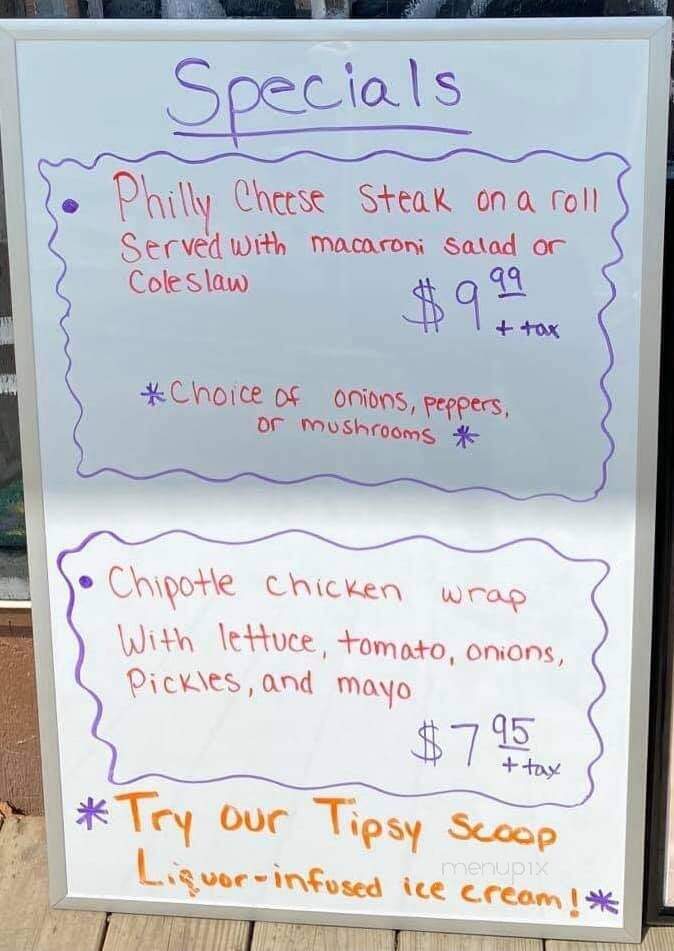 Specials
• Philly Cheese Steak on a roll
Served with macaroni salad or
Coleslaw
$9.99
+ tax
*Choice of onions, peppers,
or mushrooms *
• Chipotle chicken wrap
With lettuce, tomato, onions,
Pickles, and mayo
$7.95
+ tax
*Try our Tipsy Scoop
Liquor-infused ice cream! *
menupix